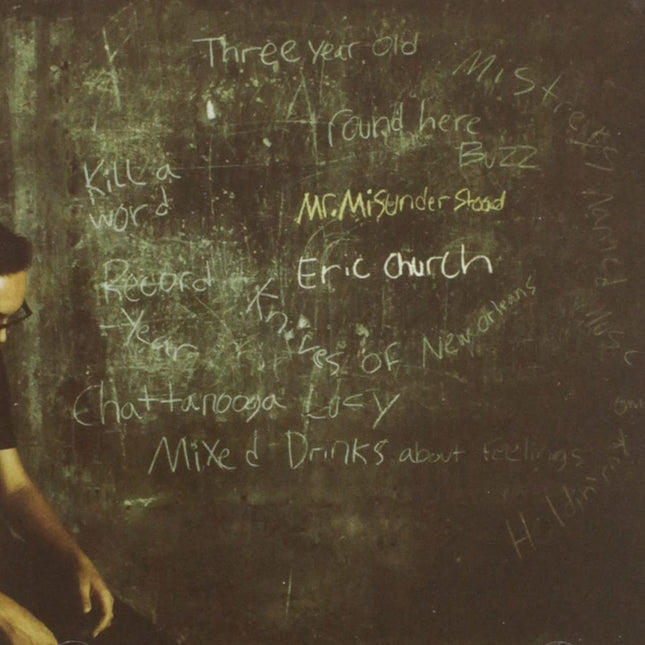 Three year old
Mistress Named Music
round here
Buzz
Kill a
word
Mr. Misunderstood
Eric Church
Record
-Year
Knives of New orleans
Chattanooga Lucy
Mixed Drinks about Feelings
Holdin